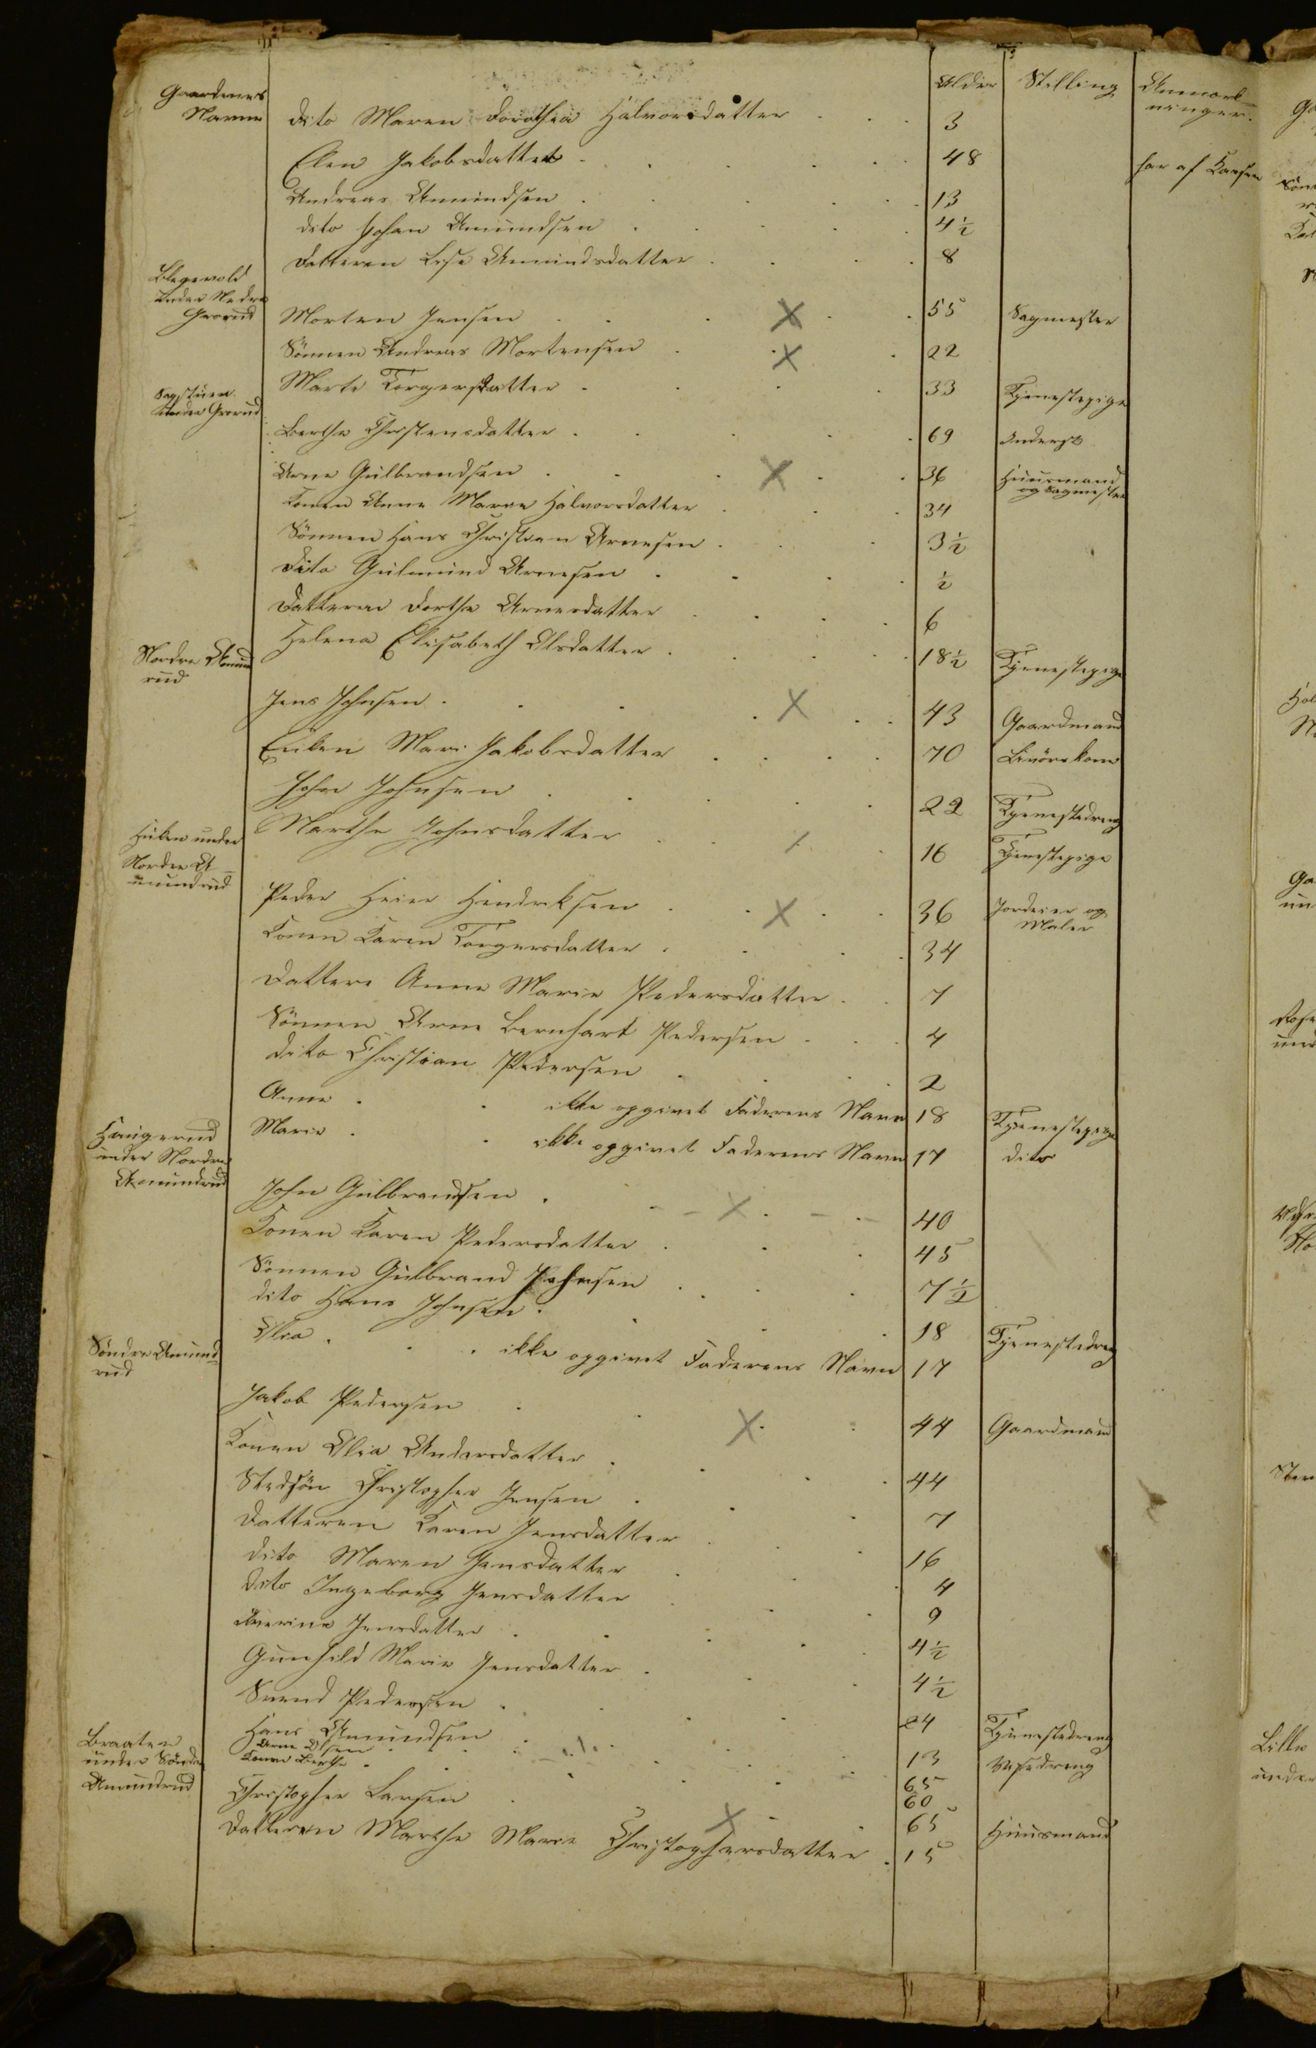 Gaardenes Navne Alder Stilling Anmærkninger.
Dito Maren Dorothea Halvorsdatter 3
Elen Jakobsdatter 48
Andreas Amundsen 13
dito Johan Amundsen 4½
Datteren Lise Amundsdatter 8
under Nedre Grorud
Morten Jensen 55 Sagmester
Sönnen Andreas Mortensen 22
Marte Torgersdatter 33 Tjenestepige
Sagstuen under Grorud
Berthe Christensdatter 69 Inderst
Arne Gulbrandsen 36 Huusmand og Sagmester
Konen Anne Marie Halvorsdatter 34
Sönnen Hans Christian Arnesen 3½
dito Gulmund Arnesen ½
Datteren Dorthe Arnesdatter 6
Helena Elisabeth Olsdatter 18½ Tjenestepige
Nordre Amundrud
Jens Johnsen 43 Gaardmand
Enken Mari Jakobsdatter 70 Livörekone
John Johnsen 22 Tjenestedreng
Marthe Johnsdatter 16 Tjenestepige
under Nordre Amundrud
Peder Heier Hendriksen 36 Jordeier og Maler
Konen Karen Torgersdatter 34
Datteren Anne Marie Pedersdatter 7
Sönnen Arne Bernhart Pedersen 4
dito Christian Pedersen 2
Anne ikke opgivet Faderens Navn 18 Tjenestepige
Marie ikke opgivet Faderens Navn 17 dito
Haugerud under Nordre Amundrud
John Gulbrandsen 40
Konen Karen Pedersdatter 45
Sönnen Gulbrand Johnsen 7½
dito Hans Johnsen 18 Tjenestedreng
Olea ikke opgivet Faderens Navn 17
Söndre Amundrud
Jakob Pedersen 44 Gaardmand
Konen Olea Andersdatter 44
Stedsön Christopher Jensen 7
Datteren Karen Jensdatter 16
dito Maren Jensdatter 4
dito Ingeborg Jensdatter 9
Jensdatter 4½
Gunhild Marie Jensdatter 4½
Svend Pedersen 24 Tjenestedreng
Hans Amundsen 13
Arne Olsen 65
Konen Berthe 60
Braaten under Söndre Amundrud
Christopher Larsen 65 Huusmand
Datteren Marthe Marie Christophersdatter 15